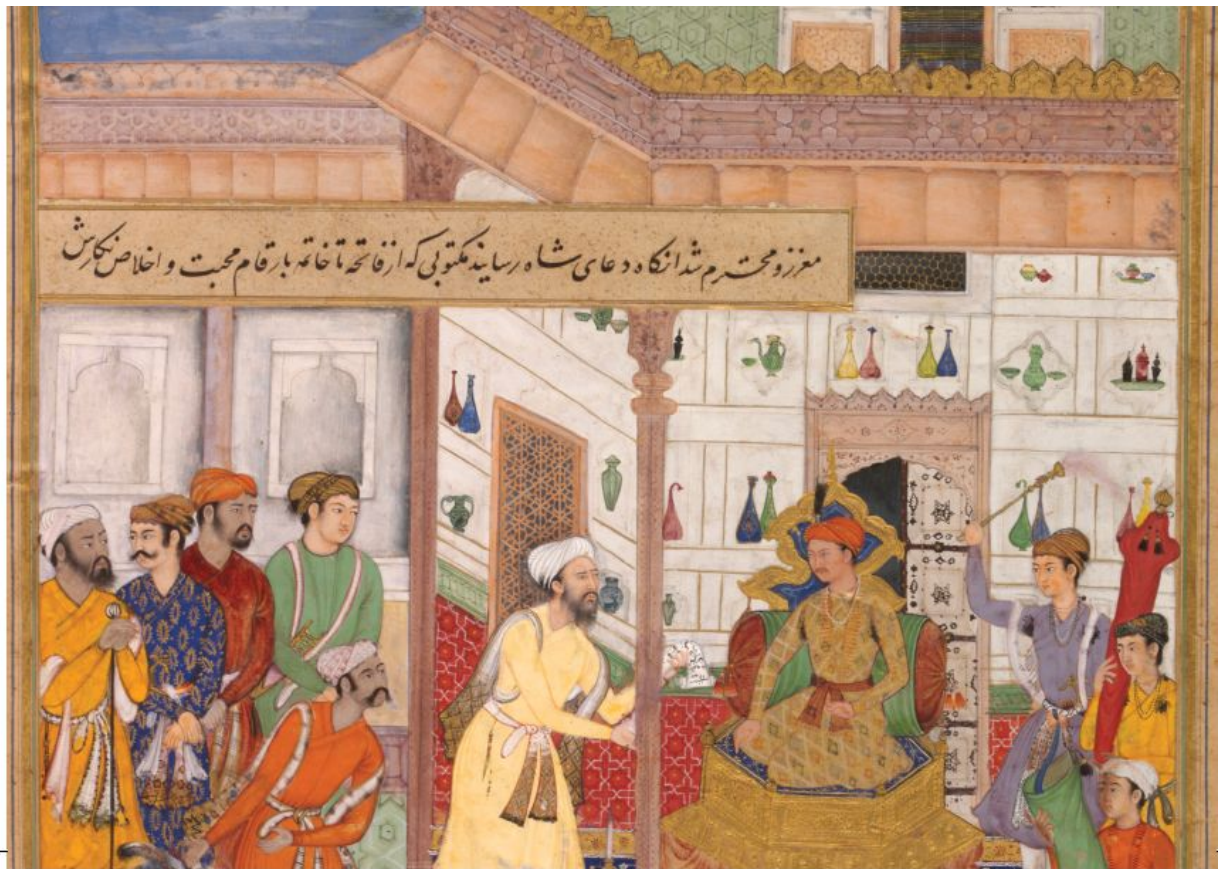 معزز و محترم شد انکاه دعای شاه رسانید مکتوبی که از فاتحه تا خاتمه بارقام محبت و اخلاص نکارش